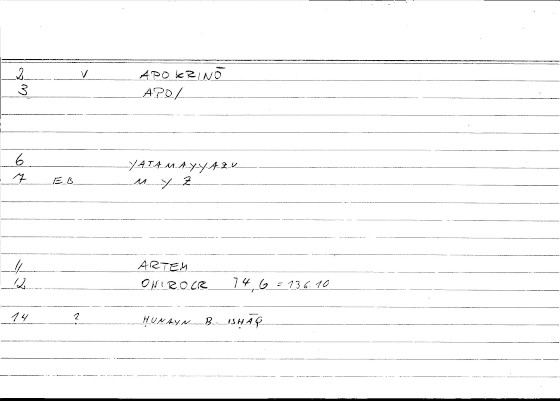 2 V APOKRINŌ
3 APO/
6 YATAMAYYAZU
7 EB M Y Z
11 ARTEM
12 ONIROCR 74,6 = 136.10
14 ? ḤUNAYN B. ISḤĀQ